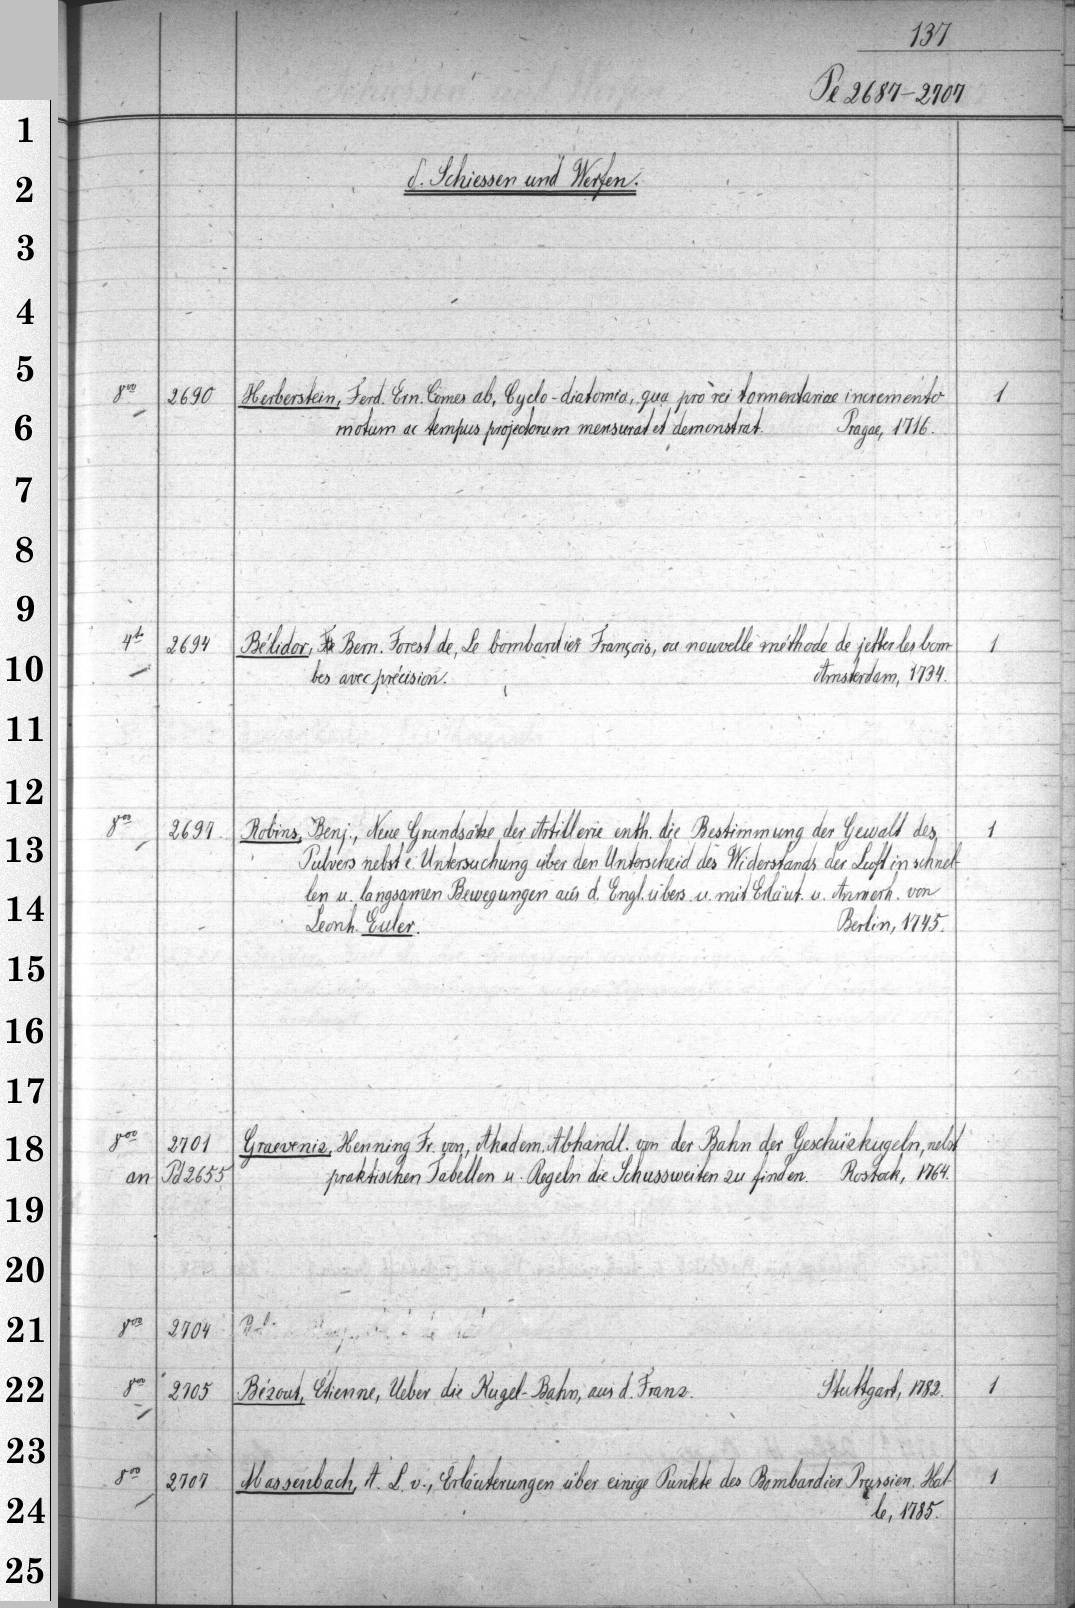 137
Pe 2687-2707
1
2
3
4
5
6
7
8
9
10
11
12
13
14
15
16
17
18
19
20
21
22
23
24
25
d. Schiessen und Werfen.
8vo 2690 Herberstein, Ferd. Ern. Comes ab, Cyclo-diatomia, qua pro rei tormentariae incremento 1
motum ac tempus projectorum mensurat et demonstrat. Pragae, 1716.
4to 2694 Bélidor, Bern. Forest de, Le bombardier François, ou nouvelle méthode de jetter les bom- 1
bes avec précision. Amsterdam, 1734.
8vo 2697. Robins, Benj., Neue Grundsätze der Artillerie enth. die Bestimmung der Gewalt des 1
Pulvers nebst e. Untersuchung über den Unterscheid des Widerstands der Luft in schnel-
len u. langsamen Bewegungen aus d. Engl. übers. u. mit Erläut. u. Anmerk. von
Leonh. Euler. Berlin, 1745.
8vo 2701 Graeveniz, Henning Fr. von, Akadem. Abhandl. von der Bahn der Geschüzkugeln, nebst
an Pd 2655 praktischen Tabellen u. Regeln die Schussweiten zu finden. Rostock, 1764.
8vo 2704
8vo 2705 Bézout, Etienne, Ueber die Kugel-Bahn, aus d. Franz. Stuttgart, 1782. 1
8vo 2707 Massenbach, A. L. v., Erläuterungen über einige Punkte des Bombardier Prussien. Hal- 1
le, 1785.